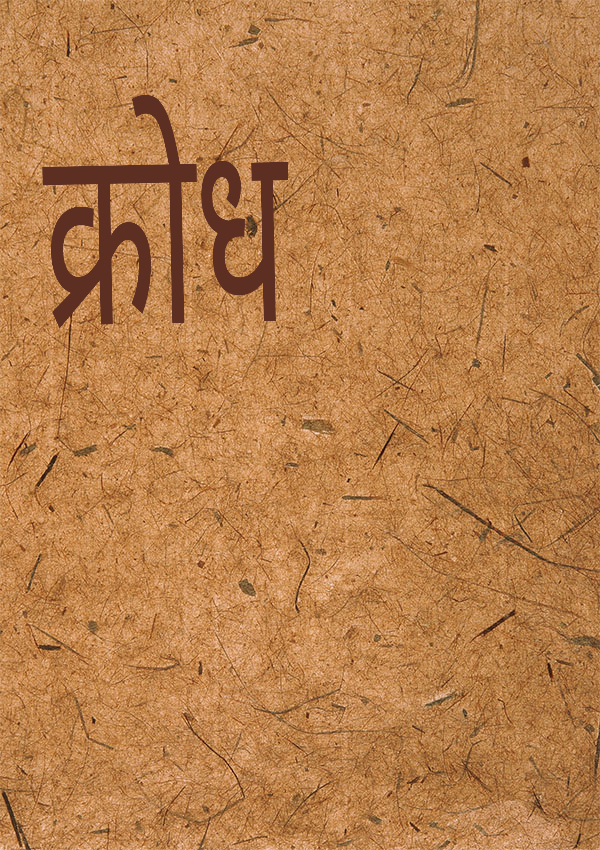 क्रोध